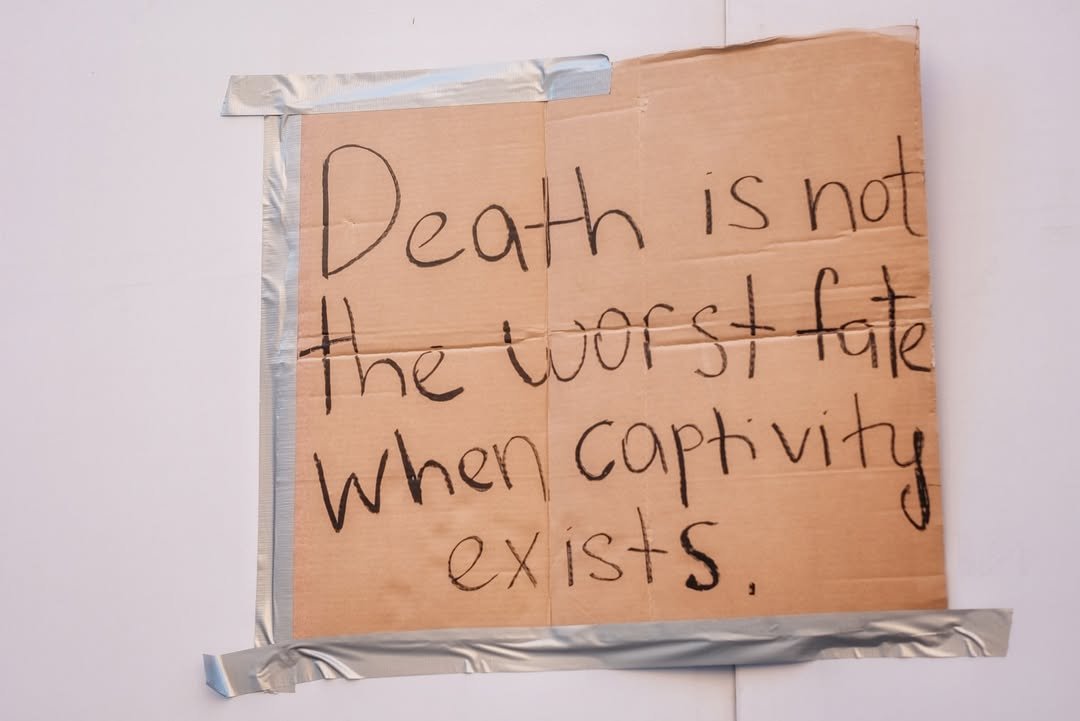 Death is not
the worst fate
when captivity
exists.